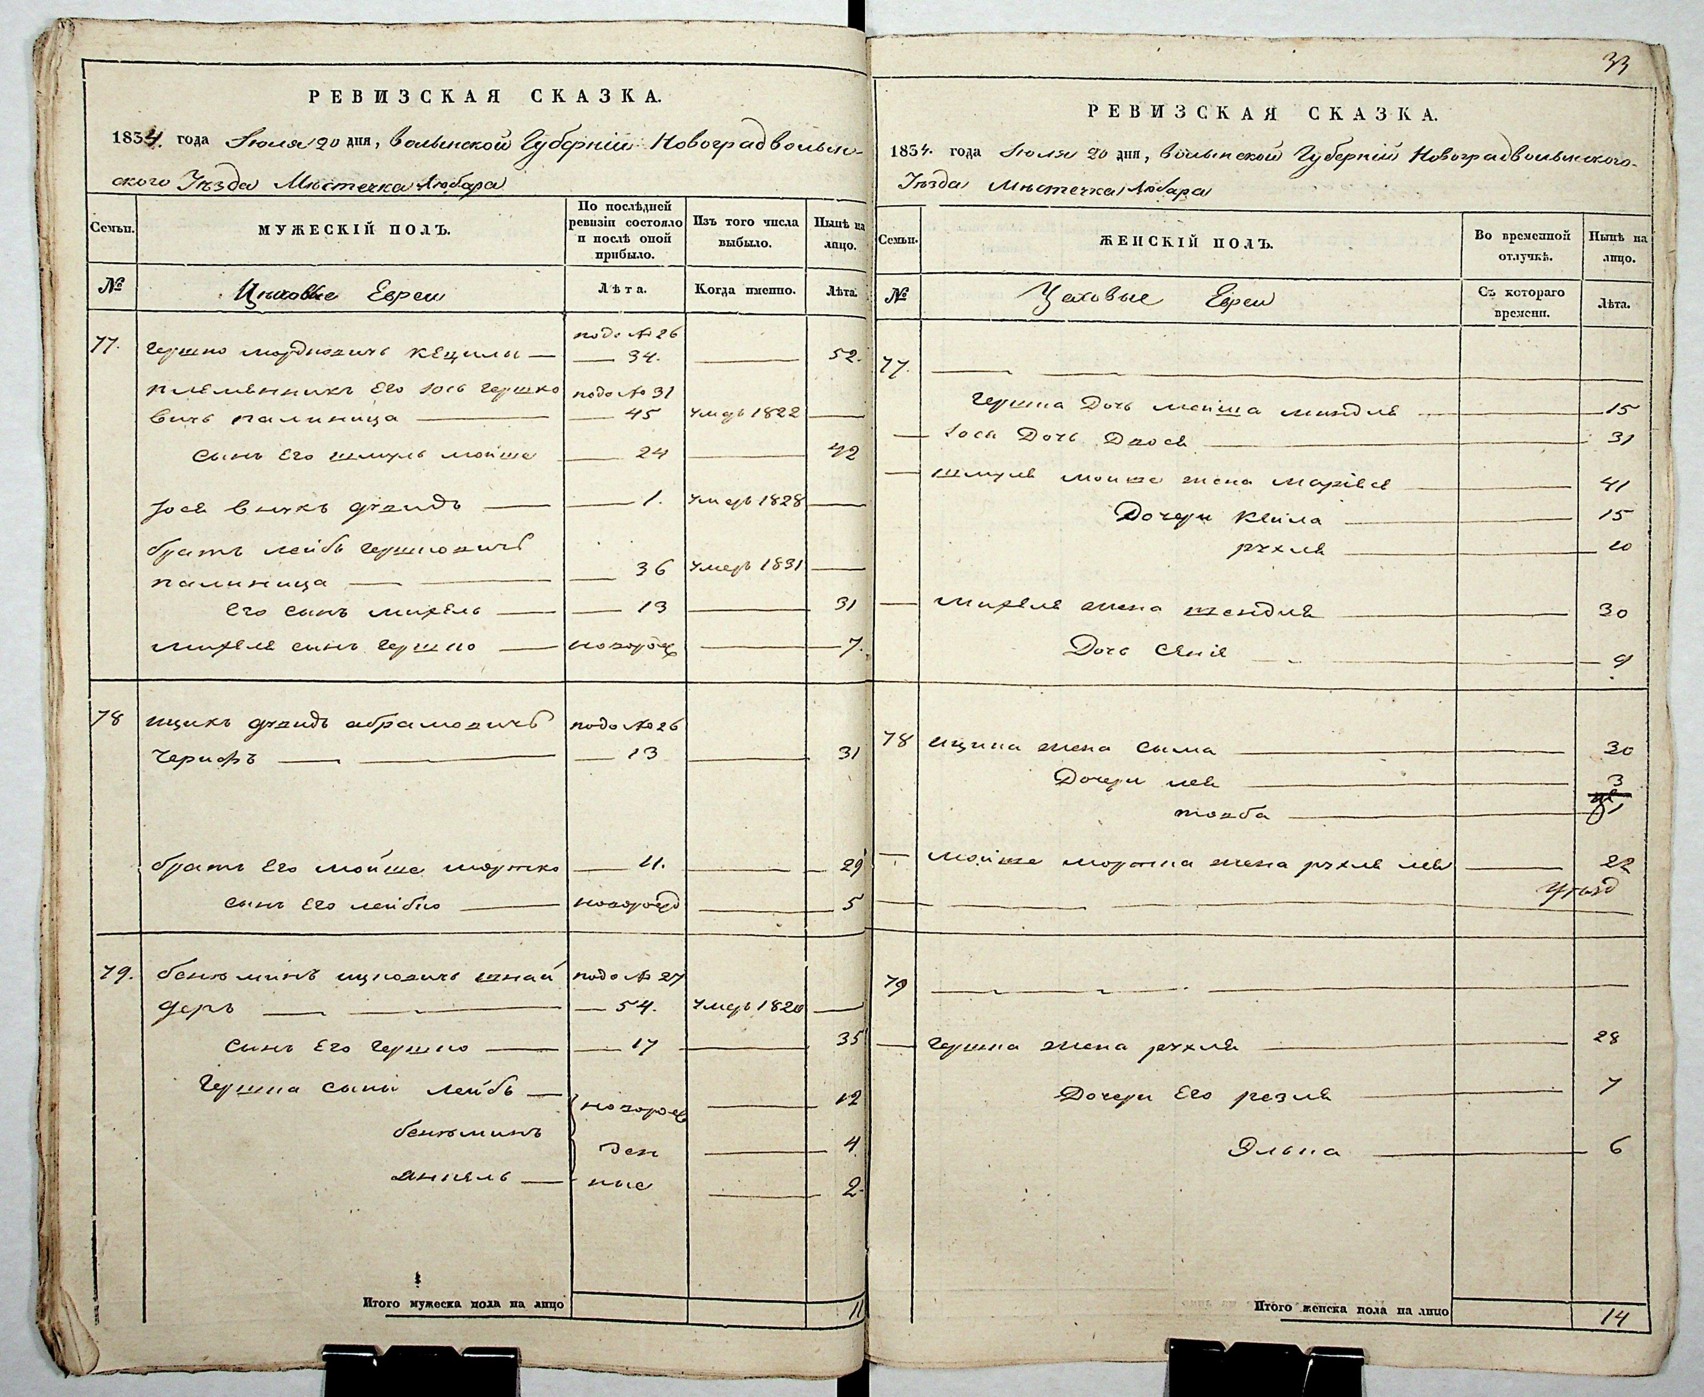 РЕВИЗСКАЯ СКАЗКА.
1834. года Июля 20 дня, Волынской Губерніи Новоградволын-
ского Уѣзда Мѣстечка Любара
Семьи.
МУЖЕСКІЙ ПОЛЪ.
По послѣдней ревизіи состояло и послѣ оной прибыло.
Изъ того числа выбыло.
Нынѣ на лицо.
№
Цеховые Евреи
Лѣта.
Когда именно.
Лѣта.
77. подъ № 26
Гершко Мордковичь — 34. — 52.
племенникъ Его Іось Гершко подъ № 31
вичь палиница — 45 умеръ 1822 —
сынъ Его Шмуль Мойше — 24 — 42
Іося внукъ Дувидъ — 1. умеръ 1828 —
братъ Лейбъ Гершковичъ
палиница — 36 умеръ 1831 —
Его сынъ Михель — 13 — 31
Михеля сынъ Гершко — новорож — 7.
78 Ицикъ Дувидъ Абрамовичъ подъ № 26
— 13 — 31
братъ Его Мойше Мортко — 11. — 29
сынъ Его Лейбко — новорожд — 5
79. Беньминъ Ицковичь Шнай подъ № 27
деръ — 54. умеръ 1820 —
сынъ Его Гершко — 17 — 35
Гершка сыны Лейбъ — новорож — 12
Беньминъ ден — 4
Янкель — ные — 2
Итого мужеска пола на лицо 11
33
РЕВИЗСКАЯ СКАЗКА.
1834. года Июля 20 дня, Волынской Губерніи Новоградволынского
Уѣзда Мѣстечка Любара
Семьи.
ЖЕНСКІЙ ПОЛЪ.
Во временной отлучкѣ.
Нынѣ на лицо.
№
Цеховые Евреи
Съ котораго времени.
Лѣта.
77.
Гершка Дочь Мейша Миндля — 15
Іося Дочь Двося — 31
Шмуля Мойше жена Маріся — 41
Дочери Кейла — 15
рухля — 10
Михеля жена Шендля — 30
Дочь — 9
78 Ицика жена Сима — 30
Дочери Лея — 3
товба — 1
Мойше Мортка жена рухля Лея — 22
79
Гершка жена рухля — 28
Дочери Его резля — 7
Элька — 6
Итого женска пола на лицо 14